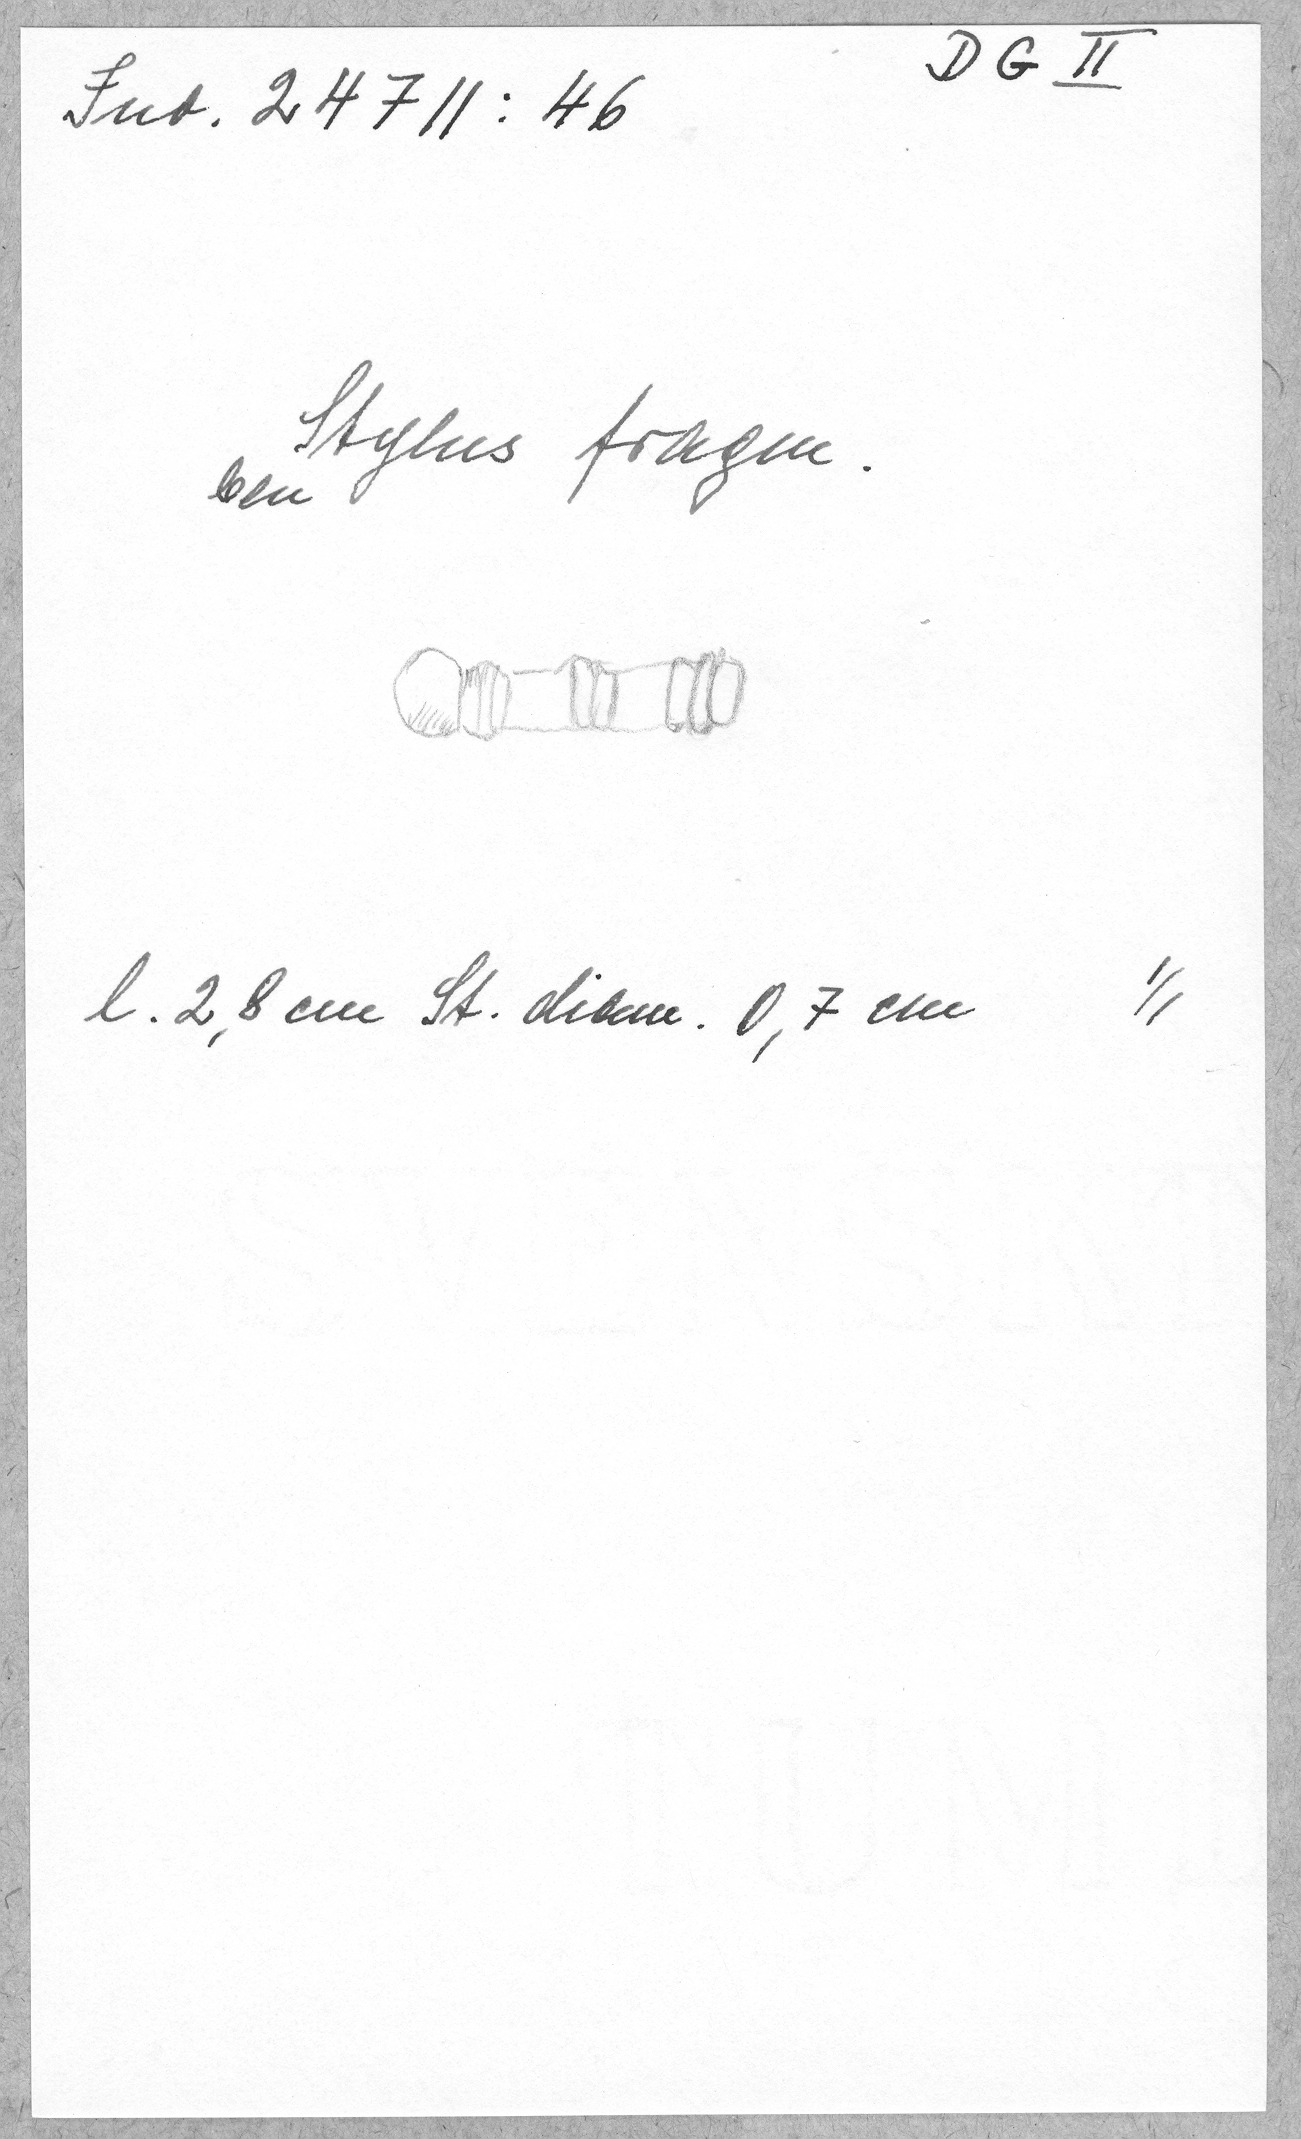 DG II
Inv. 24711:46
Stylus fragm.
ben
l. 2,8 cm St. diam. 0,7 cm 1/1